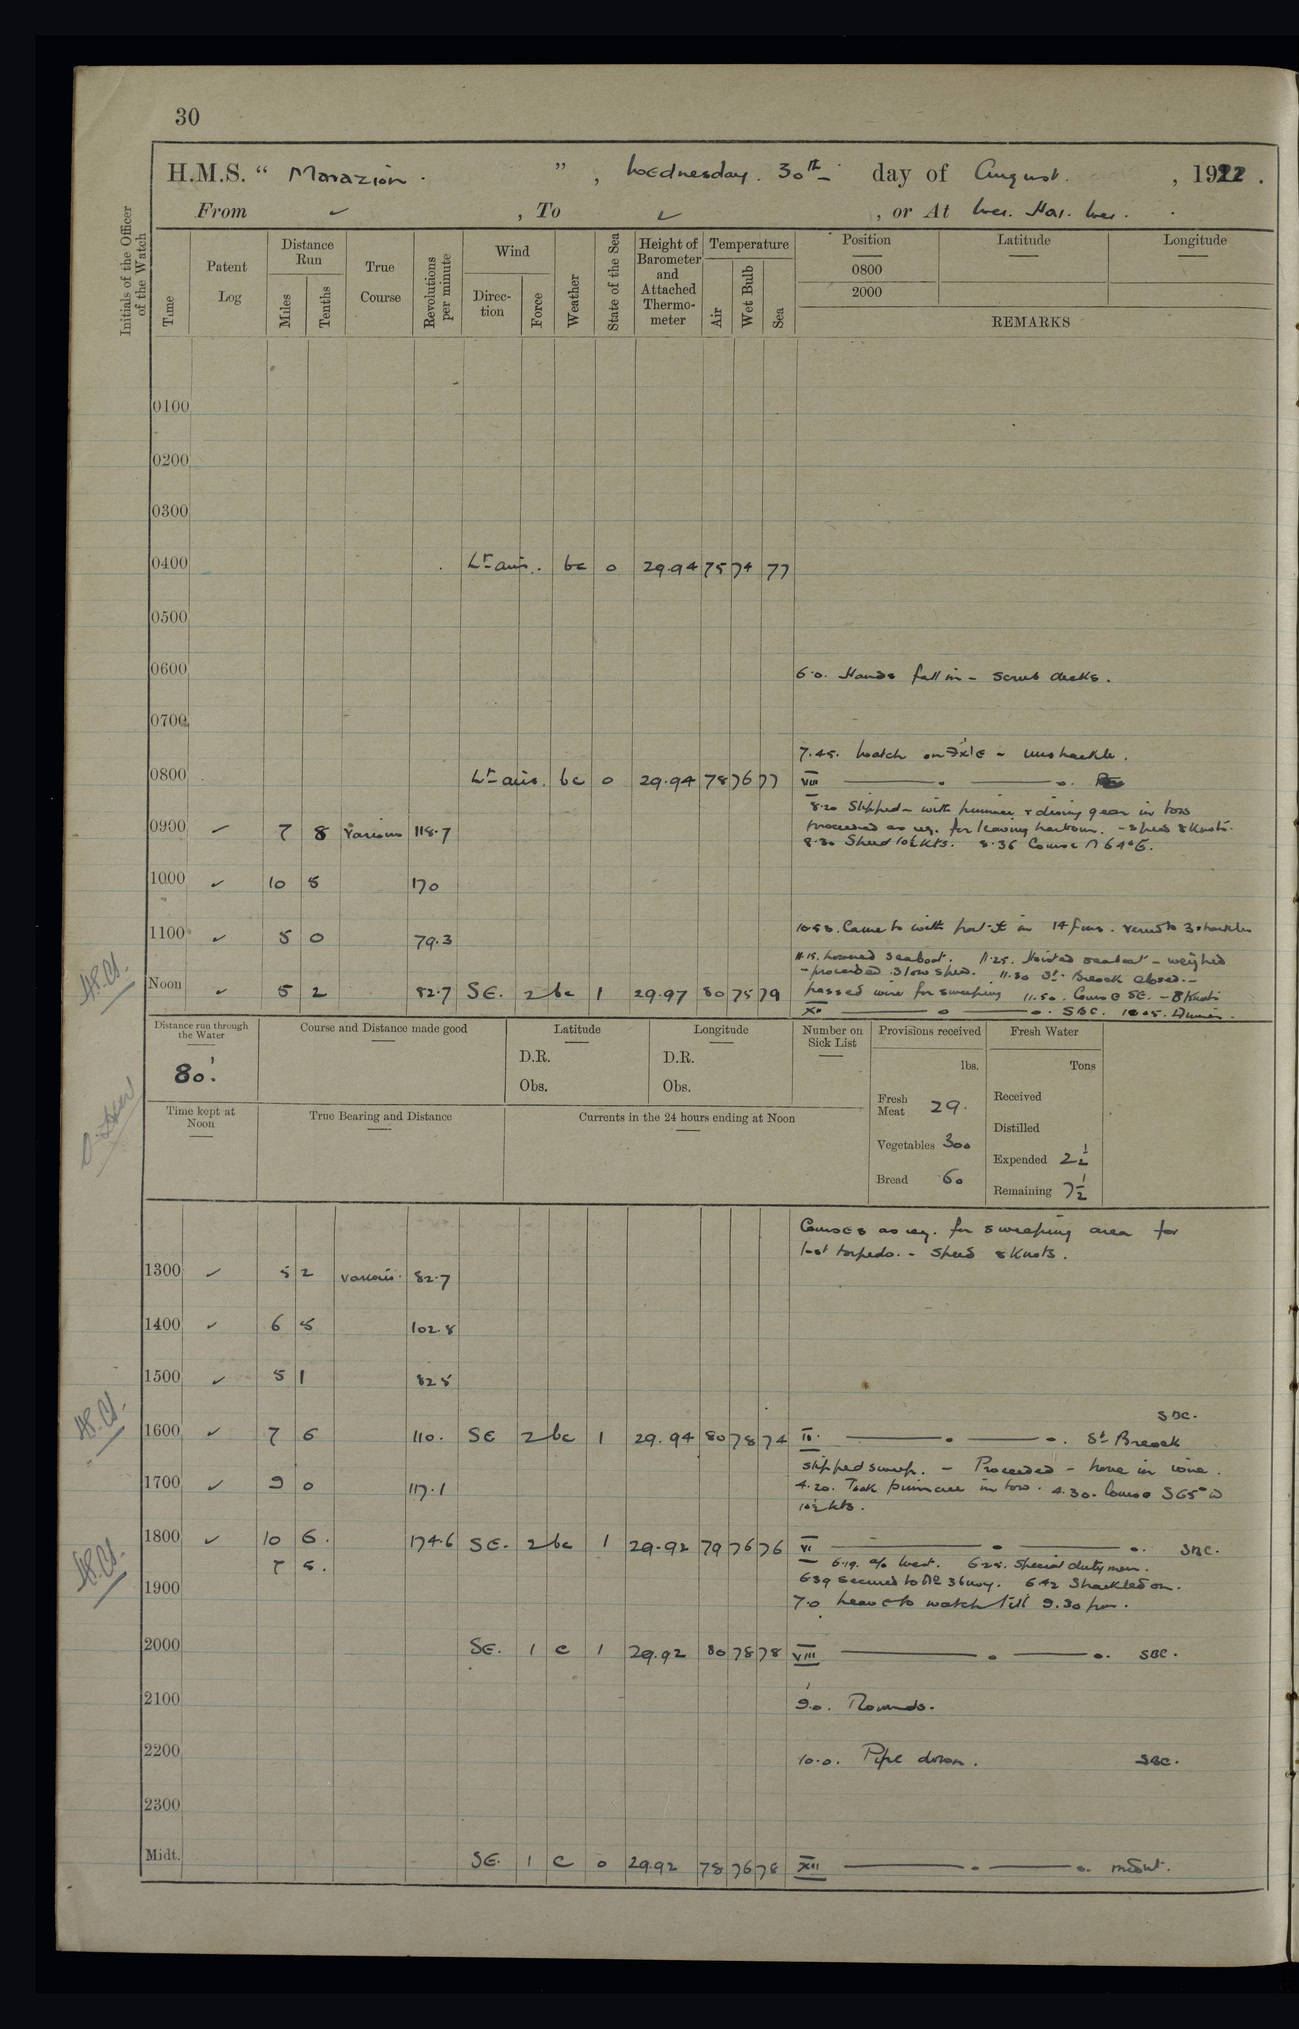 30
H.M.S. “ Marazion . ” , Wednesday. 30th day of August. , 1922 .
From ✓ , To ✓ , or At Wei. Hai. Wei.
Initials of the Officer of the Watch
Time
Patent Log
Distance Run
Miles
Tenths
True Course
Revolutions per minute
Wind
Direction
Force
Weather
State of the Sea
Height of Barometer and Attached Thermometer
Temperature
Air
Wet Bulb
Sea
Position
0800
2000
Latitude
Longitude
REMARKS
0100
0200
0300
0400 Lt airs. bc 0 29.94 75 74 77
0500
0600 6.0. Hands fall in - scrub decks.
0700
7.45. Watch on - unshackle.
0800 Lt airs. bc 0 29.94 78 76 77 VIII
8.20 Slipped - with pinnace & diving gear in tow
0900 ✓ 7 8 Various 118.7 proceeded as req. for leaving harbour. - speed 8 Knots.
8.30 Speed 10½ Kts. 8.36 Course N 64° E.
1000 ✓ 10 5 170
1100 ✓ 5 0 79.3 10.50. Came to with port in 14 fms. veered to 3 shackles
11.15. Lowered seaboat. 11.25. Hoisted seaboat - weighed
- proceeded slow speed. 11.30 St. Breock closed. -
Noon ✓ 5 2 82.7 SE. 2 bc 1 29.97 80 75 79 passed wire for sweeping 11.50. Course SE. - 8 Knots
XII SBC. Dinner.
Distance run through the Water
80.'
Course and Distance made good
Latitude
D.R.
Obs.
Longitude
D.R.
Obs.
Number on Sick List
Provisions received
lbs.
Fresh Meat 29.
Vegetables 300
Bread 60
Fresh Water
Tons
Received
Distilled
Expended 2½
Remaining 7½
Time kept at Noon
True Bearing and Distance
Currents in the 24 hours ending at Noon
Courses as req. for sweeping area for
lost torpedo. - speed 8 Knots.
1300 ✓ 5 2 various. 82.7
1400 ✓ 6 5 102.8
1500 ✓ 5 1 82.5
SBC.
1600 ✓ 7 6 110. SE 2 bc 1 29.94 80 78 74 IV. St Breock
slipped sweep. - Proceeded - hove in wire.
1700 ✓ 9 0 117.1 4.20. Took pinnace in tow. 4.30. Course S65° W
10½ kts.
1800 ✓ 10 6. 174.6 SE. 2 bc 1 29.92 79 76 76 VI SBC.
7 5. 6.19. a/c West. 6.25. Special duty men.
1900 6.39 secured to No 3 buoy. 6.42 Shackled on.
7.0 leave to watch till 9.30 pm.
2000 SE. 1 c 1 29.92 80 78 78 VIII SBC.
2100 9.0. Rounds.
2200 10.0. Pipe down. SBC.
2300
Midt. SE. 1 c 0 29.92 78 76 78 XII midnt.